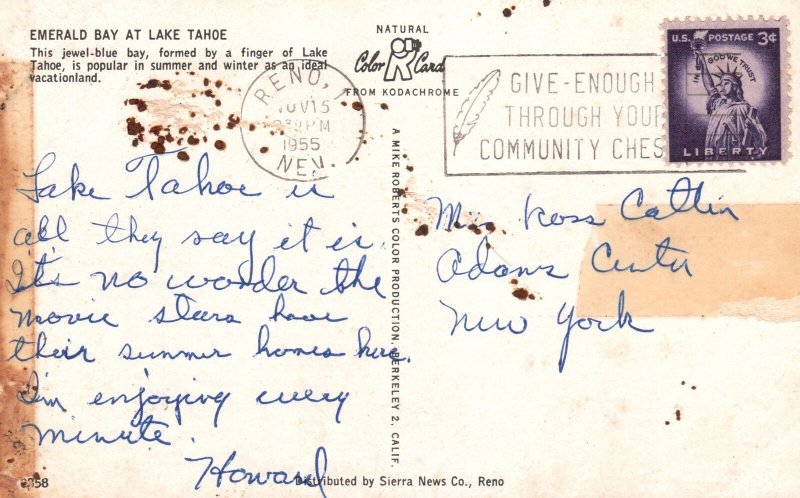 EMERALD BAY AT LAKE TAHOE
This jewel-blue bay, formed by a finger of Lake
Tahoe, is popular in summer and winter as an ideal
vacationland.
NATURAL
Color Card
FROM KODACHROME
RENO,
1955
NEV.
GIVE-ENOUGH
THROUGH YOUR
COMMUNITY CHES
U.S. POSTAGE 3¢
IN GOD WE TRUST
LIBERTY
Lake Tahoe is
all they say it is.
It's no wonder the
movie stars have
their summer homes here.
I'm enjoying every
minute.
Howard
A MIKE ROBERTS COLOR PRODUCTION, BERKELEY 2, CALIF.
Ross Catlin
Adams Center
New York
Distributed by Sierra News Co., Reno